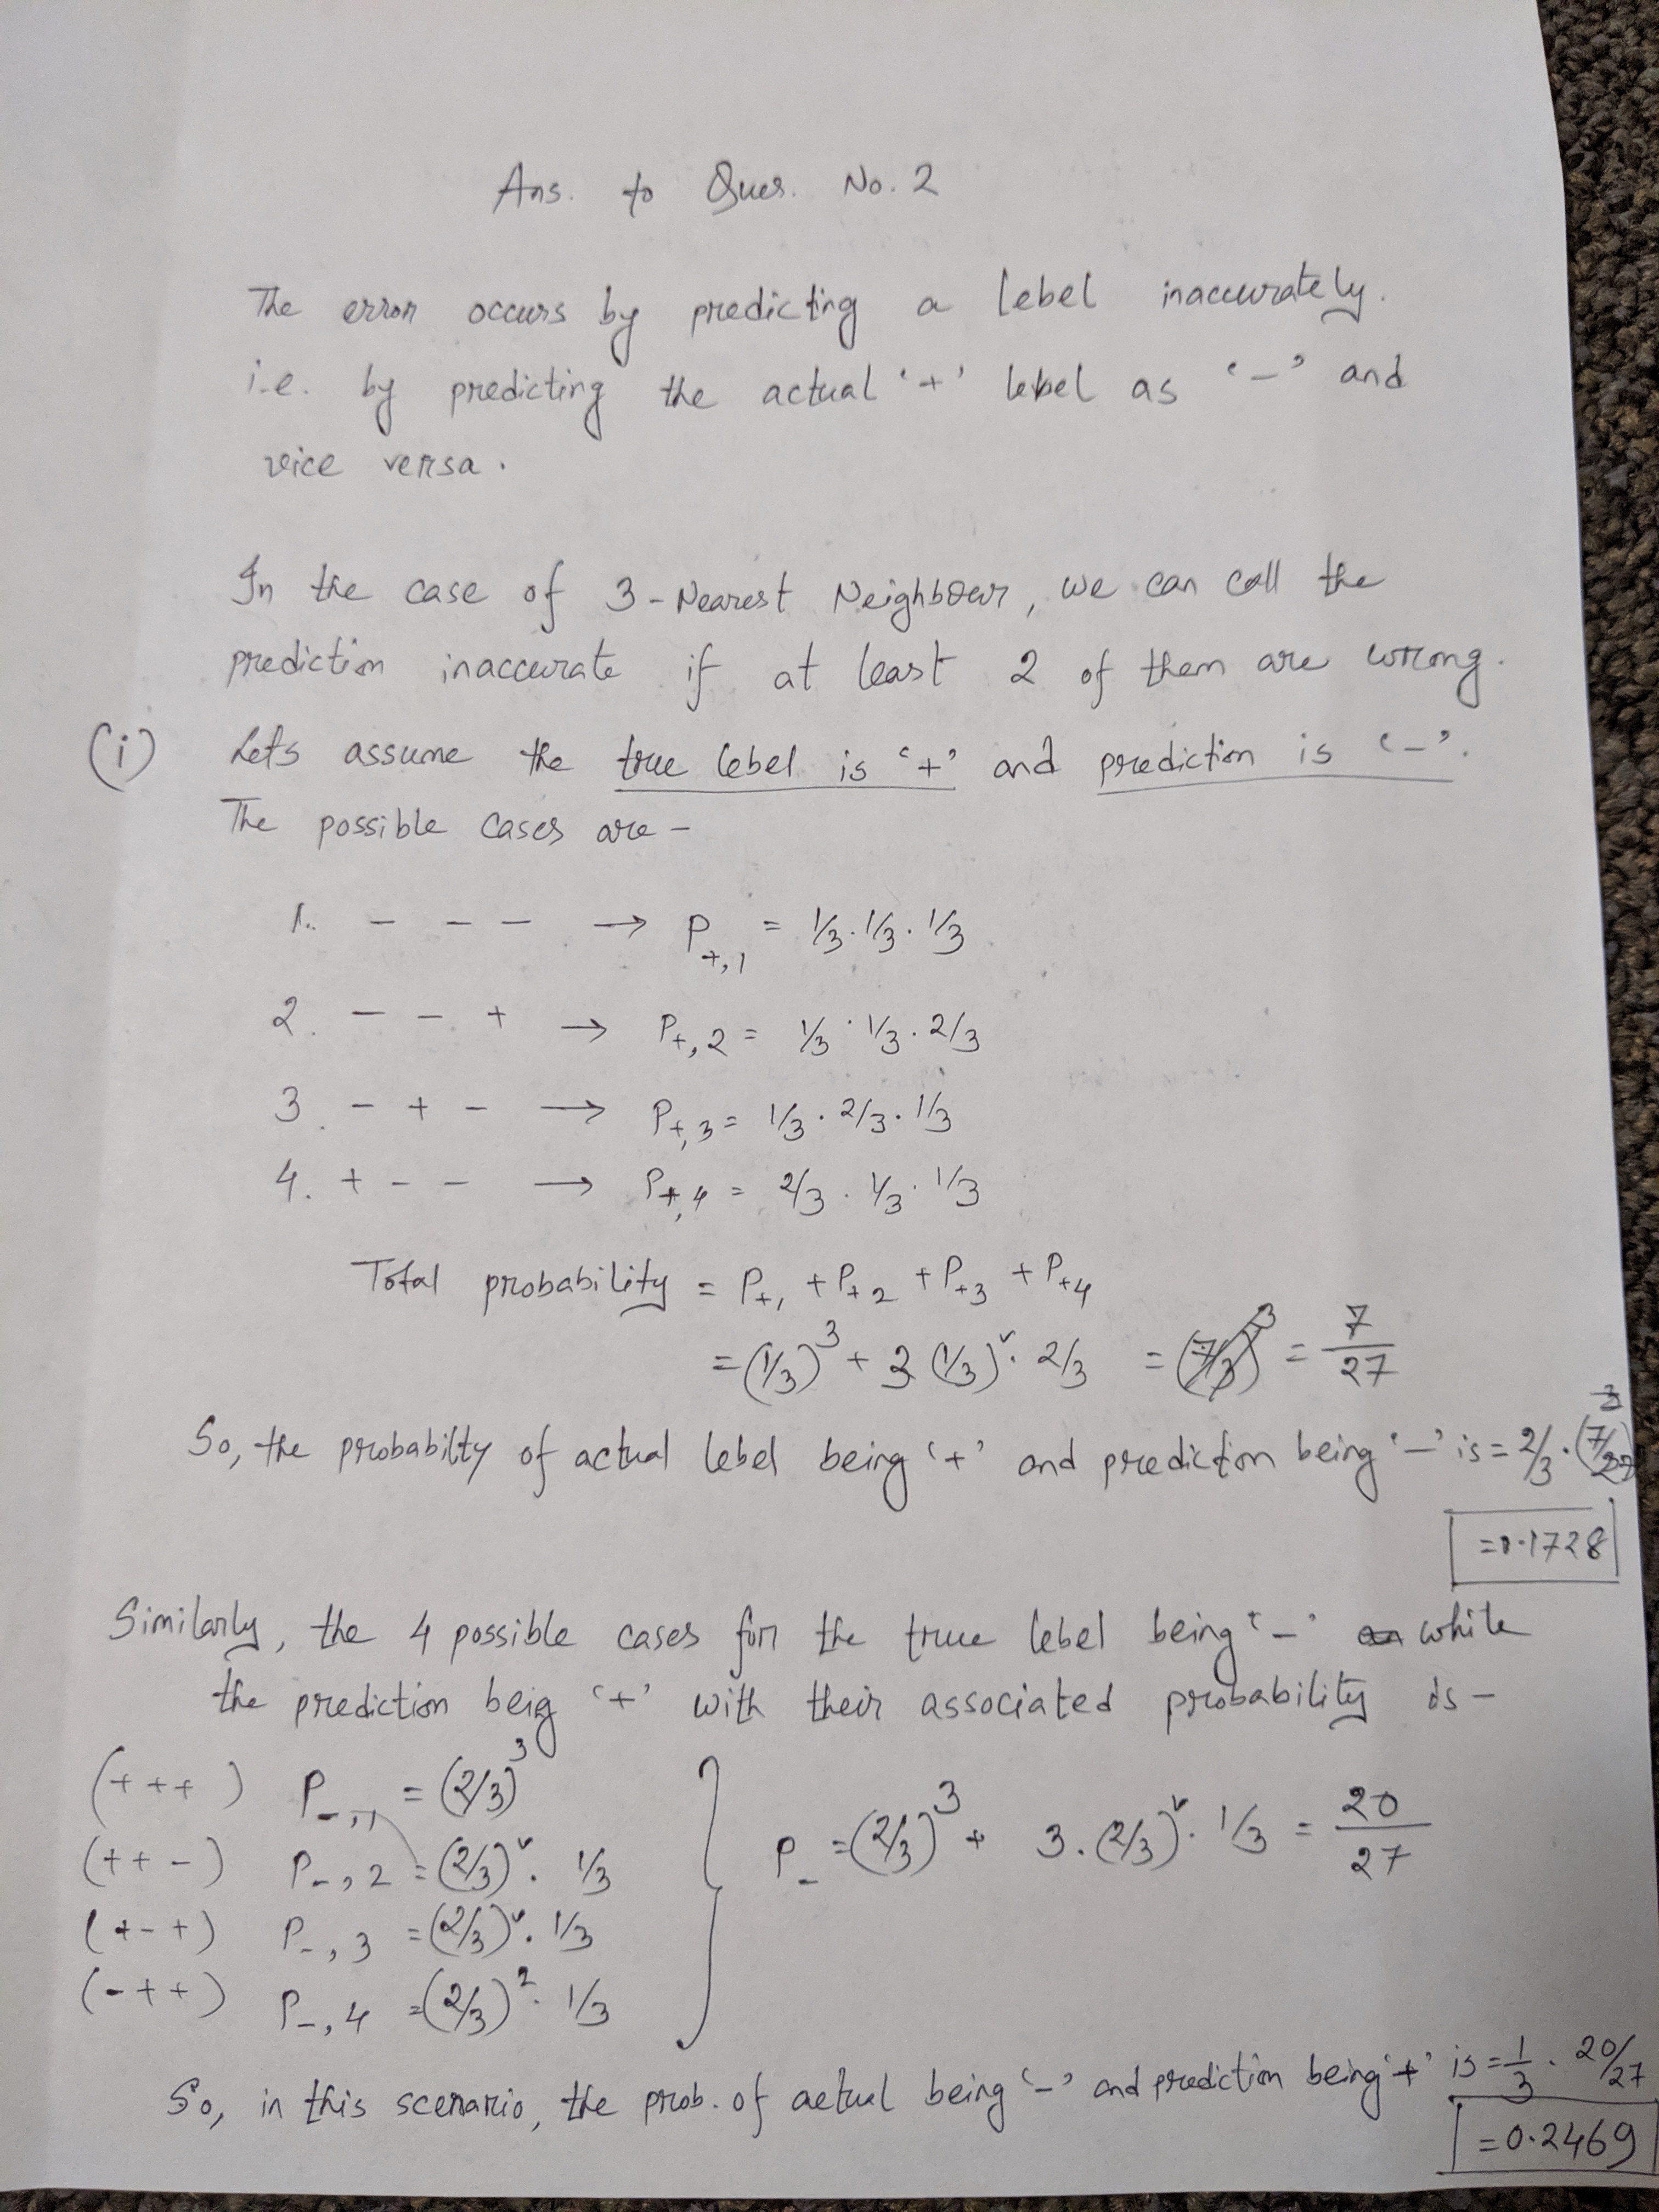 Ans. to Ques. No. 2
The error occurs by predicting a lebel inaccurately.
i.e. by predicting the actual '+' lebel as '-' and
vice versa.
In the case of 3-Nearest Neighbour, we can call the
prediction inaccurate if at least 2 of them are wrong.
(i) Lets assume the true lebel is '+' and prediction is '-'.
The possible cases are -
1. - - - → P+,1 = 1/3 . 1/3 . 1/3
2. - - + → P+,2 = 1/3 . 1/3 . 2/3
3. - + - → P+,3 = 1/3 . 2/3 . 1/3
4. + - - → P+,4 = 2/3 . 1/3 . 1/3
Total probability = P+1 + P+2 + P+3 + P+4
= (1/3)³ + 3 (1/3)² . 2/3 = = 7/27
So, the probabilty of actual lebel being '+' and prediction being '-' is = 2/3 . (7/27)
= 0.1728
Similarly, the 4 possible cases for the true lebel being '-' while
the prediction beig '+' with their associated probability is -
(+ + +) P-,1 = (2/3)³
(+ + -) P-,2 = (2/3)² . 1/3
(+ - +) P-,3 = (2/3)² . 1/3
(- + +) P-,4 = (2/3)² . 1/3
P- = (2/3)³ + 3 . (2/3)² . 1/3 = 20/27
So, in this scenario, the prob. of actual being '-' and prediction being '+' is = 1/3 . 20/27
= 0.2469